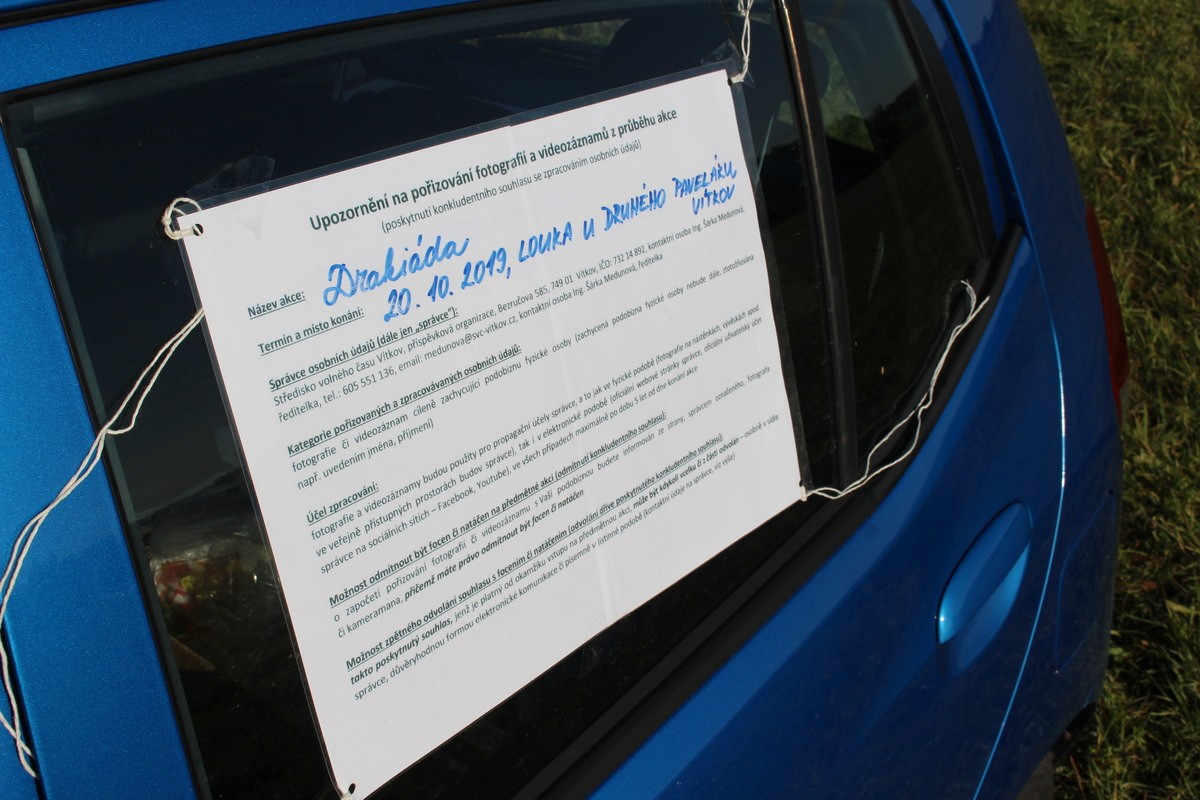 Upozornění na pořizování fotografií a videozáznamů z průběhu akce
(poskytnutí konkludentního souhlasu se zpracováním osobních údajů)
Název akce: Drakiáda
Termín a místo konání: 20. 10. 2019, LOUKA U DRUHÉHO PAVELÁKU,
VÍTKOV
Správce osobních údajů (dále jen „správce"):
Středisko volného času Vítkov, příspěvková organizace, Bezručova 585, 749 01 Vítkov, IČO: 732 14 892, kontaktní osoba Ing. Šárka Medunová,
ředitelka, tel.: 605 551 136, email: medunova@svc-vitkov.cz, kontaktní osoba Ing. Šárka Medunová, ředitelka
Kategorie pořizovaných a zpracovávaných osobních údajů:
fotografie či videozáznam cíleně zachycující podobiznu fyzické osoby (zachycená podobizna fyzické osoby nebude dále, ztotožněna
např. uvedením jména, příjmení)
Účel zpracování:
fotografie a videozáznamy budou použity pro propagační účely správce, a to jak ve fyzické podobě (fotografie na nástěnkách, vývěskách apod.
ve veřejně přístupných prostorách budov správce), tak i v elektronické podobě (oficiální webové stránky správce, oficiální uživatelský účet
správce na sociálních sítích – Facebook, Youtube), ve všech případech maximálně po dobu 5 let od dne konání akce
Možnost odmítnout být focen či natáčen na předmětné akci (odmítnutí konkludentního souhlasu):
o započetí pořizování fotografií či videozáznamu s Vaší podobiznou budete informován ze strany, správcem označeného, fotografa
či kameramana, přičemž máte právo odmítnout být focen či natáčen
Možnost zpětného odvolání souhlasu s focením či natáčením (odvolání dříve poskytnutého konkludentního souhlasu):
takto poskytnutý souhlas, jenž je platný od okamžiku vstupu na předmětnou akci, může být kdykoli vcelku či z části odvolán – osobně v sídle
správce, důvěryhodnou formou elektronické komunikace či písemně v listinné podobě (kontaktní údaje na správce, viz výše)